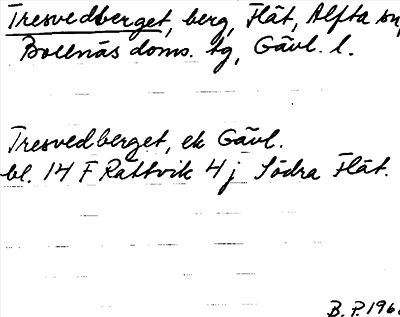 Tresvedberget, berg, Flät, Alfta sn,
Bollnäs doms. tg, Gävl. l.
Tresvedberget, ek Gävl.
bl. 14 F Rättvik 4 j Södra Flät.
B. P. 196